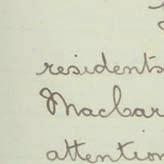 residents
Macbar
attention